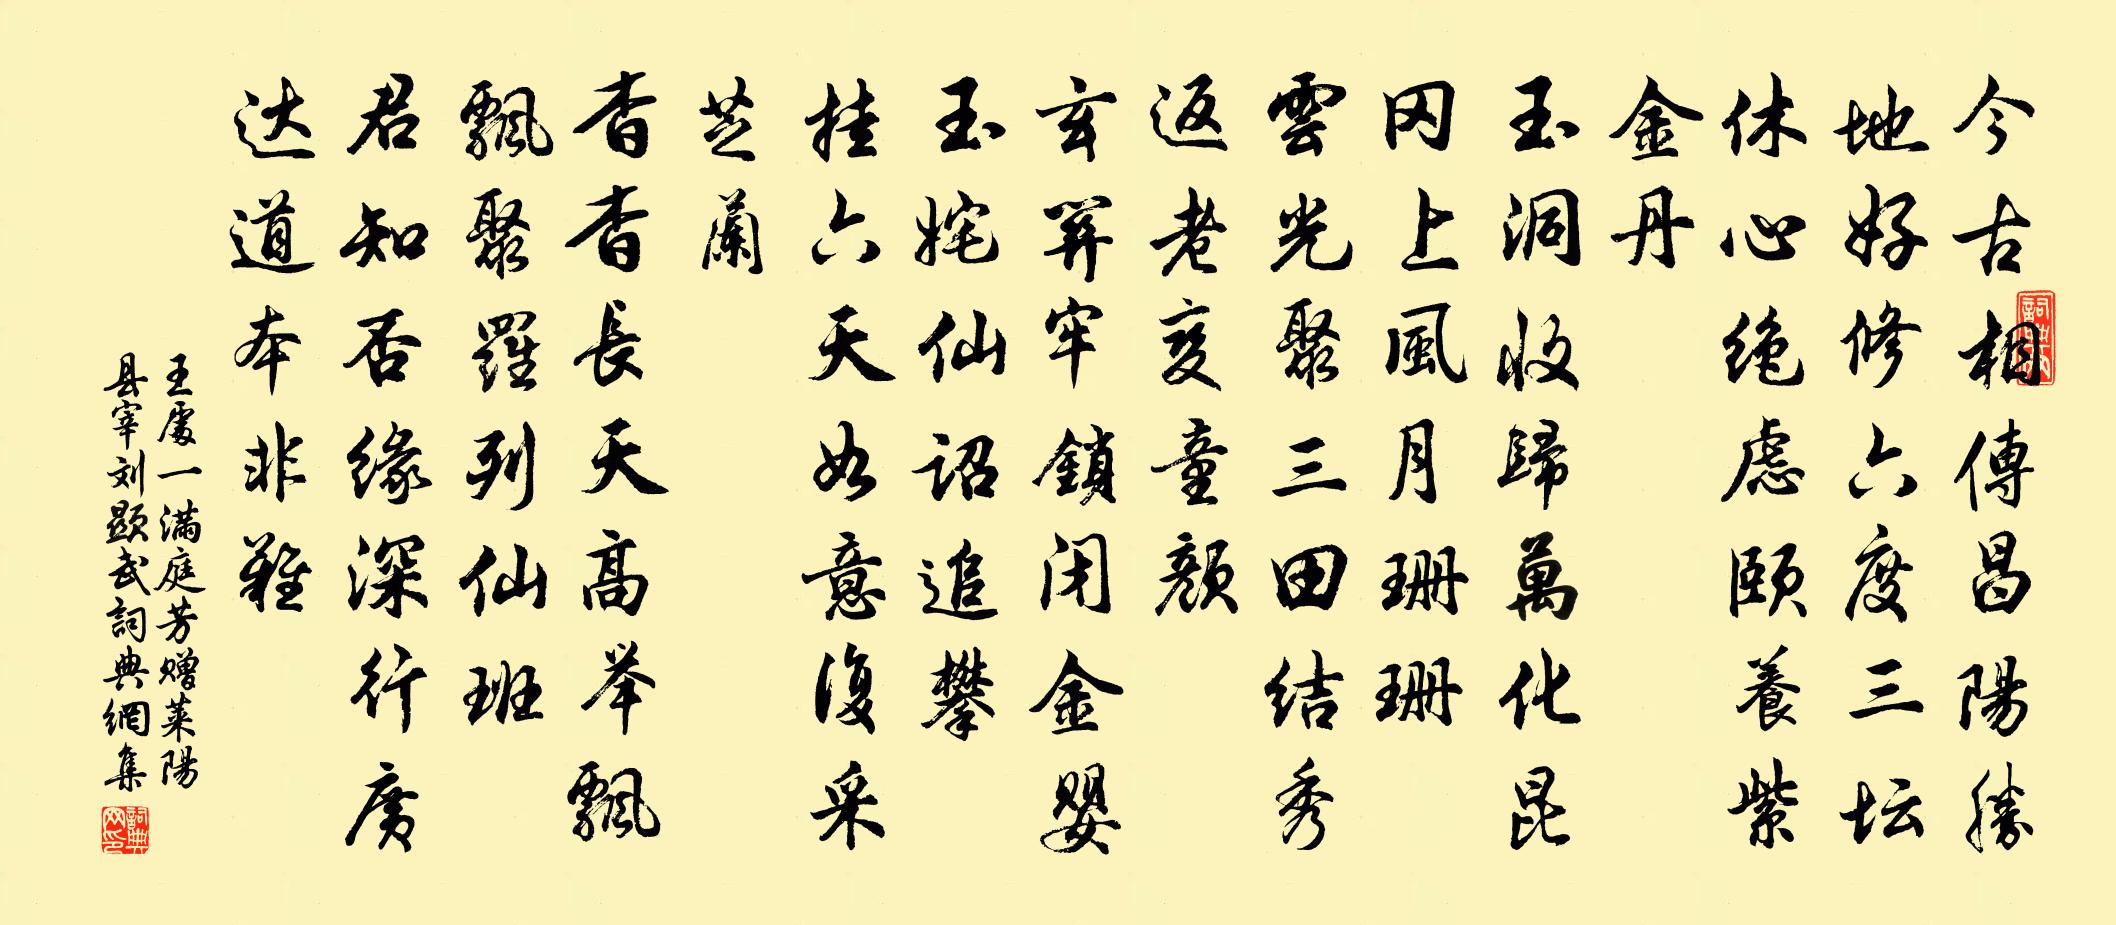 今古相傳昌陽勝
地好修六度三坛
休心绝虑颐養紫
金丹
玉洞收歸萬化昆
冈上風月珊珊
雲光聚三田结秀
返老变童颜
玄關牢鎖闭金嬰
玉姹仙诏追攀
挂六天如意復采
芝蘭
杳杳長天高举飄
飄聚羅列仙班
君知否缘深行廣
达道本非難
王處一满庭芳赠莱陽
县宰刘顕武詞典網集